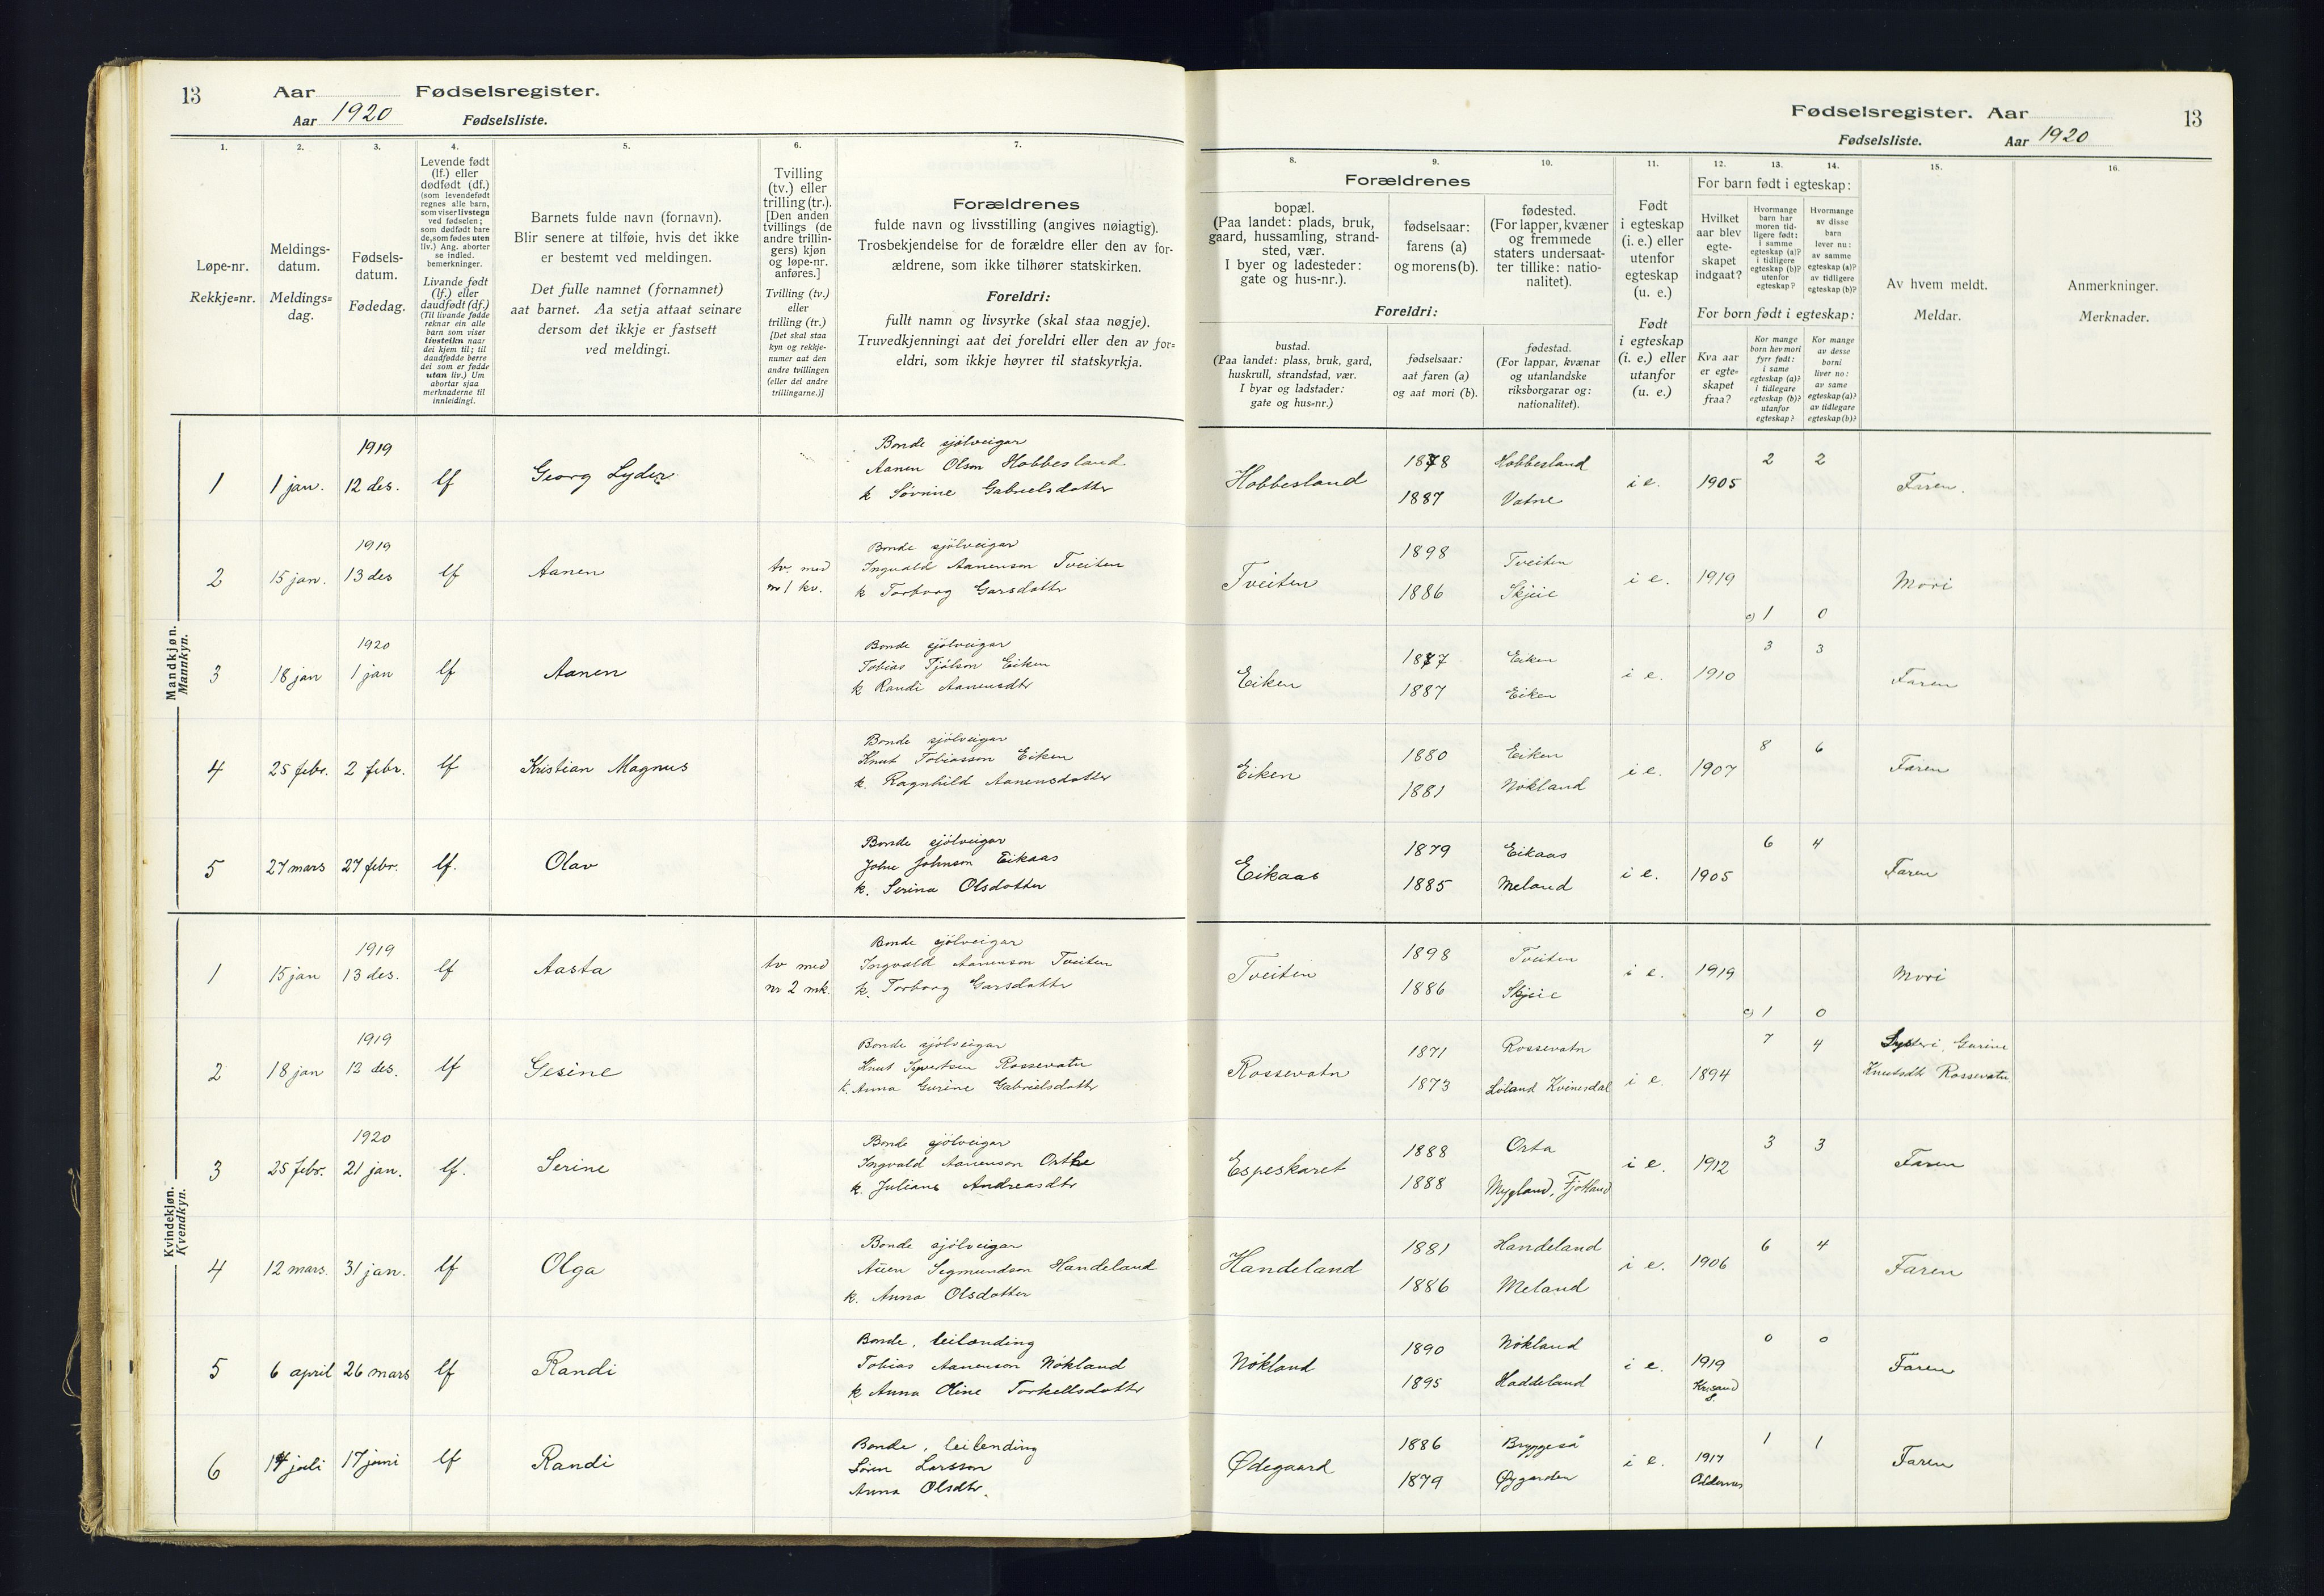 13
Aar
Fødselsregister.
Aar 1920
Fødselsliste.
1.
Løpe-nr.
Rekkje=nr.
2.
Meldings-
datum.
Meldings=
dag.
3.
Fødsels-
datum.
Fødedag.
4.
Levende født
(lf.) eller
dødfødt (df.)
(som levendefødt
regnes alle barn,
som viser livstegn
ved fødselen;
som dødfødt bare
de, som fødes uten
liv.) Ang. aborter
se indled.
bemerkninger.
Livande født
(lf.) eller
daudfødt (df.)
(Til livande fødde
reknar ein alle
barn som viser
livsteikn naar
dei kjem til; til
daudfødde berre
dei som er fødde
utan liv.) Um
abortar sjaa
merknaderne til
innleidingi.
5.
Barnets fulde navn (fornavn).
Blir senere at tilføie, hvis det ikke
er bestemt ved meldingen.
Det fulle namnet (fornamnet)
aat barnet. Aa setja attaat seinare
dersom det ikkje er fastsett
ved meldingi.
6.
Tvilling
(tv.) eller
trilling (tr.).
[Den anden
tvillings (de
andre trillin-
gers) kjøn
og løpe-nr.
anføres.]
Tvilling (tv.)
eller
trilling (tr.)
[Det skal staa
kyn og rekkje-
numer aat den
andre tvillingen
(eller dei andre
trillingarne.)]
7.
Forældrenes
fulde navn og livsstilling (angives nøiagtig).
Trosbekjendelse for de forældre eller den av for-
ældrene, som ikke tilhører statskirken.
Foreldri:
fullt namn og livsyrke (skal staa nøgje).
Truvedkjenningi aat dei foreldri eller den av for=
eldri, som ikkje høyrer til statskyrkja.
Mandkjøn.
Mannkyn.
1919
1 1 jan. 12 des. lf Georg Lyder
Bonde sjölveigar
Aanen Olson Hobbesland
k Sørine Gabrielsdotter
1919
2 15 jan. 13 des lf Aanen
tv. med
nr 1 kv.
Bonde sjölveigar
Ingvald Aanenson Tveiten
k Torborg Garsdotter
1920
3 18 jan 1 jan lf Aanen
Bonde sjölveigar
Tobias Tjölson Eiken
k Randi Aanensdtr
4 25 febr. 2 febr. lf Kristian Magnus
Bonde sjölveigar
Knut Tobiasson Eiken
k. Ragnhild Aanensdotter
5 27 mars 27 febr. lf. Olav
Bonde sjölveigar
Johnson Eikaas
k. Serina Olsdotter
Kvindekjøn.
Kvendkyn.
1919
1 15 jan 13 des. lf Aasta
tv med
nr 2 mk.
Bonde sjölveigar
Ingvald Aanenson Tveiten
k. Torborg Garsdotter
1919
2 18 jan 12 des. lf Gesine
Bonde sjölveigar
Knut Rossevatn
k. Anna Gurine Gabrielsdotter
1920
3 25 febr. 21 jan. lf. Serine
Bonde sjölveigar
Ingvald Aanenson
k. Juliane Andreasdtr
4 12 mars. 31 jan. lf Olga
Bonde sjölveigar
Segmundson Handeland
k. Anna Olsdotter
5 6 april 26 mars lf Randi
Bonde, leilending
Tobias Aanenson Nökland
k Anna Oline Torkellsdotter
6 14 juli 17 juni lf Randi
Bonde, leilending
Sören Larsson
Anna Olsdtr.
Fødselsregister. Aar
13
Fødselsliste. Aar 1920
8.
9.
10.
Forældrenes
bopæl.
(Paa landet: plads, bruk,
gaard, hussamling, strand-
sted, vær.
I byer og ladesteder:
gate og hus-nr.).
fødselsaar:
farens (a)
og morens (b).
fødested.
(For lapper, kvæner
og fremmede
staters undersaat-
ter tillike: natio-
nalitet).
Foreldri:
bustad.
(Paa landet: plass, bruk, gard,
huskrull, strandstad, vær.
I byar og ladstader:
gate og hus=nr.)
fødselsaar:
aat faren (a)
og aat mori (b).
fødestad.
(For lappar, kvænar
og utanlandske
riksborgarar og:
nationalitet).
11.
Født
i egteskap
(i. e.) eller
utenfor
egteskap
(u. e.)
Født
i egteskap
(i. e.) eller
utanfor
(u. e.)
12.
13.
14.
For barn født i egteskap:
Hvilket
aar blev
egte-
skapet
indgaat?
Hvormange
barn har
moren tid-
ligere født:
i samme
egteskap (a)?
i tidligere
egteskap (b)?
utenfor
egteskap?
Hvormange
av disse
barn
lever nu:
av samme
egteskap (a)?
av tidligere
egteskap (b)?
For born født i egteskap:
Kva aar
er egte=
skapet
fraa?
Kor mange
born hev mori
fyrr født:
i same
egteskap (a)?
i tidlegare
egteskap (b)?
utanfor
egteskap?
Kor mange
av desse
borni
liver no:
av same
egteskap (a)?
av tidlegare
egteskap (b)?
15.
Av hvem meldt.
Meldar.
16.
Anmerkninger.
Merknader.
Hobbesland 1878 Hobbesland i e. 1905 2 2 Faren.
1887 Vatne
Tveiten 1898 Tveiten i e. 1919 Mori
1886 Skjeie
c) 1 0
Eiken 1887 Eiken i e. 1910 3 3 Faren
1887 Eiken
Eiken 1880 Eiken i e. 1907 8 6 Faren
1881 Nökland
Eikaas 1879 Eikaas i e. 1905 6 4 Faren
1885 Meland
Tveiten 1898 Tveiten i e. 1919 Mori
1886 Skjeie
c) 1 0
Rossevatn 1871 Rossevatn i e. 1894 7 4 Systeri, Gurine
1873 Loland Kvinesdal Knutsdtr Rossevatn
Espeskaret 1888 Osta i e. 1912 3 3 Faren
1888 Mygland, Fjotland
Handeland 1881 Handeland i e. 1906 6 4 Faren
1886 Meland
Nökland 1890 Nökland i e. 1919 0 0 Faren
1895 Haddeland Krsand S.
Ødegaard 1886 Bryggeså i e. 1917 1 1 Faren
1879 Øygarden Oddernes